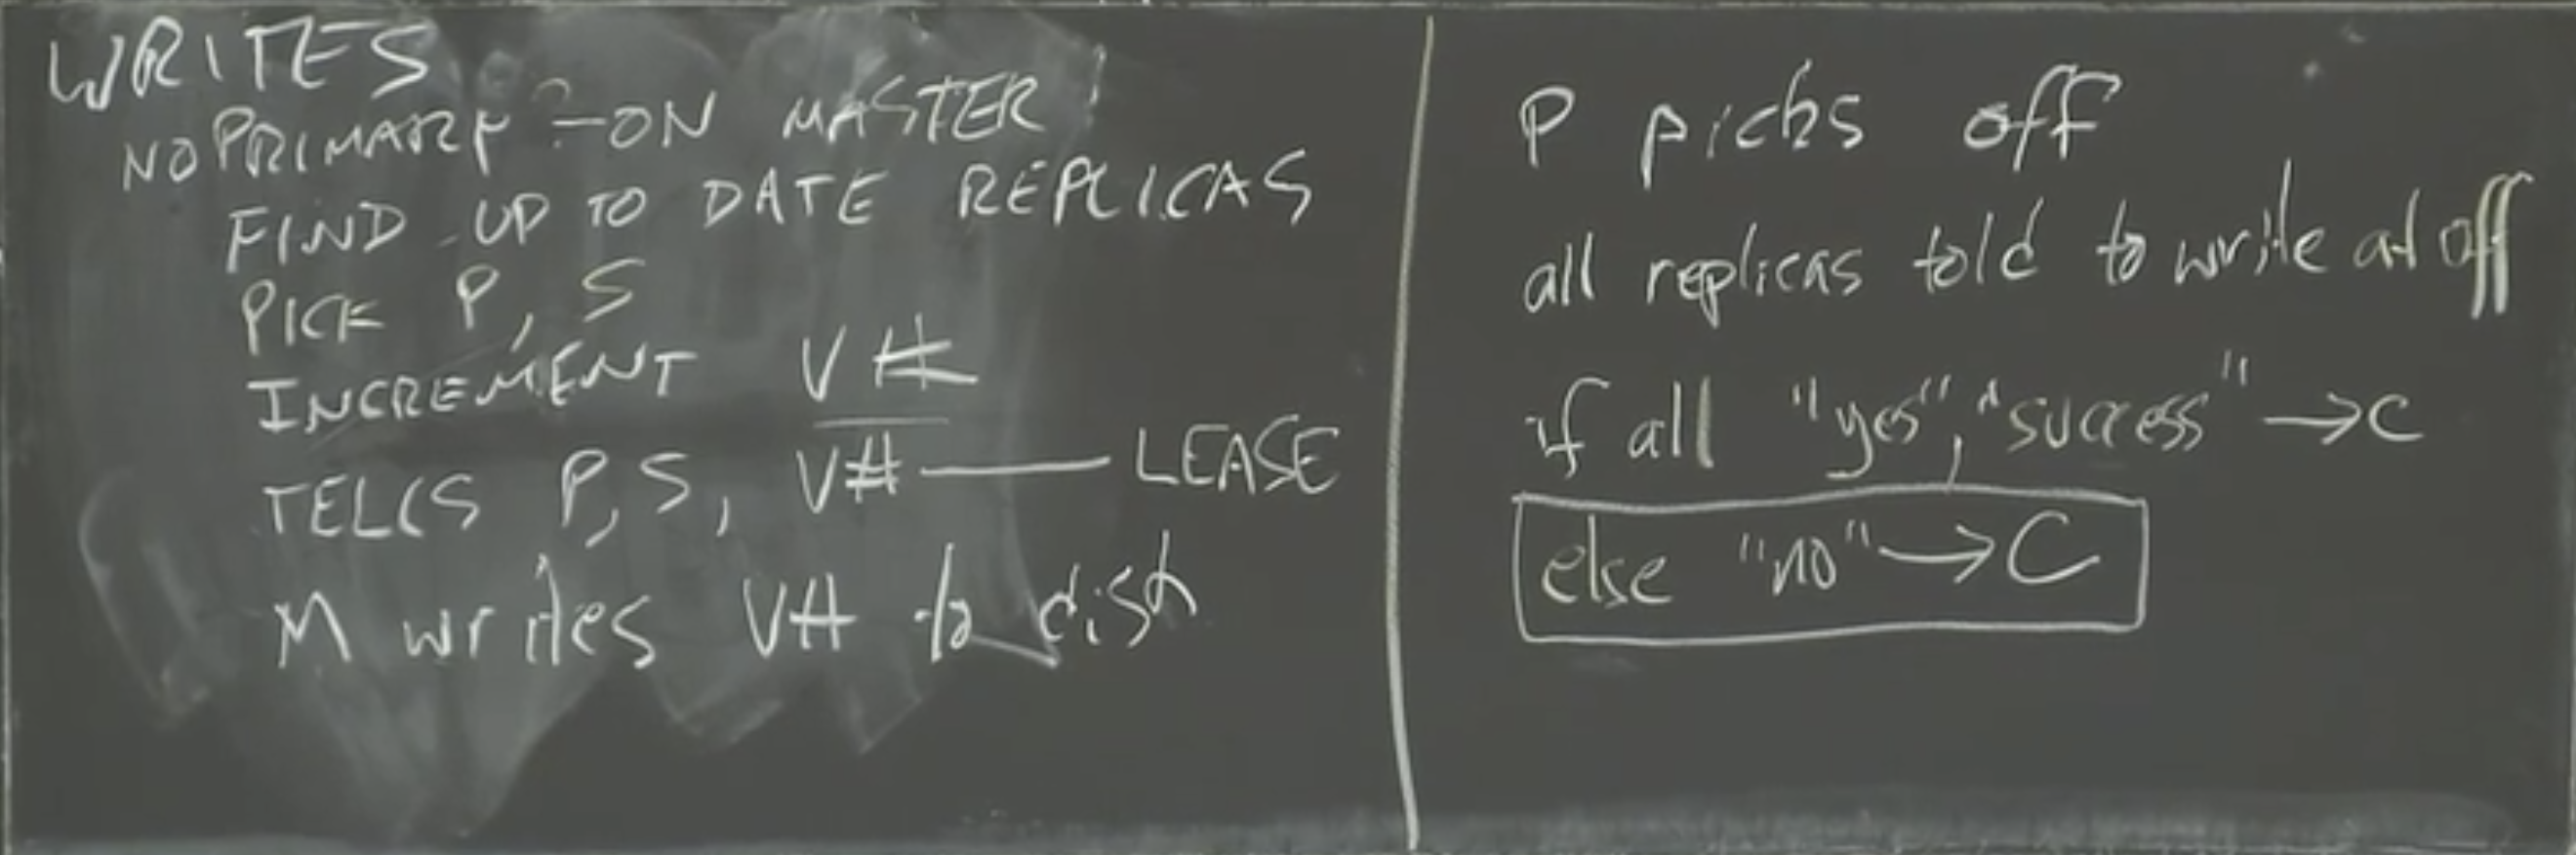 WRITES
NO PRIMARY - ON MASTER
FIND UP TO DATE REPLICAS
PICK P, S
INCREMENT V#
TELLS P, S, V# — LEASE
M writes V# to disk
P picks off
all replicas told to write at off
if all "yes", "success" → C
else "no" → C